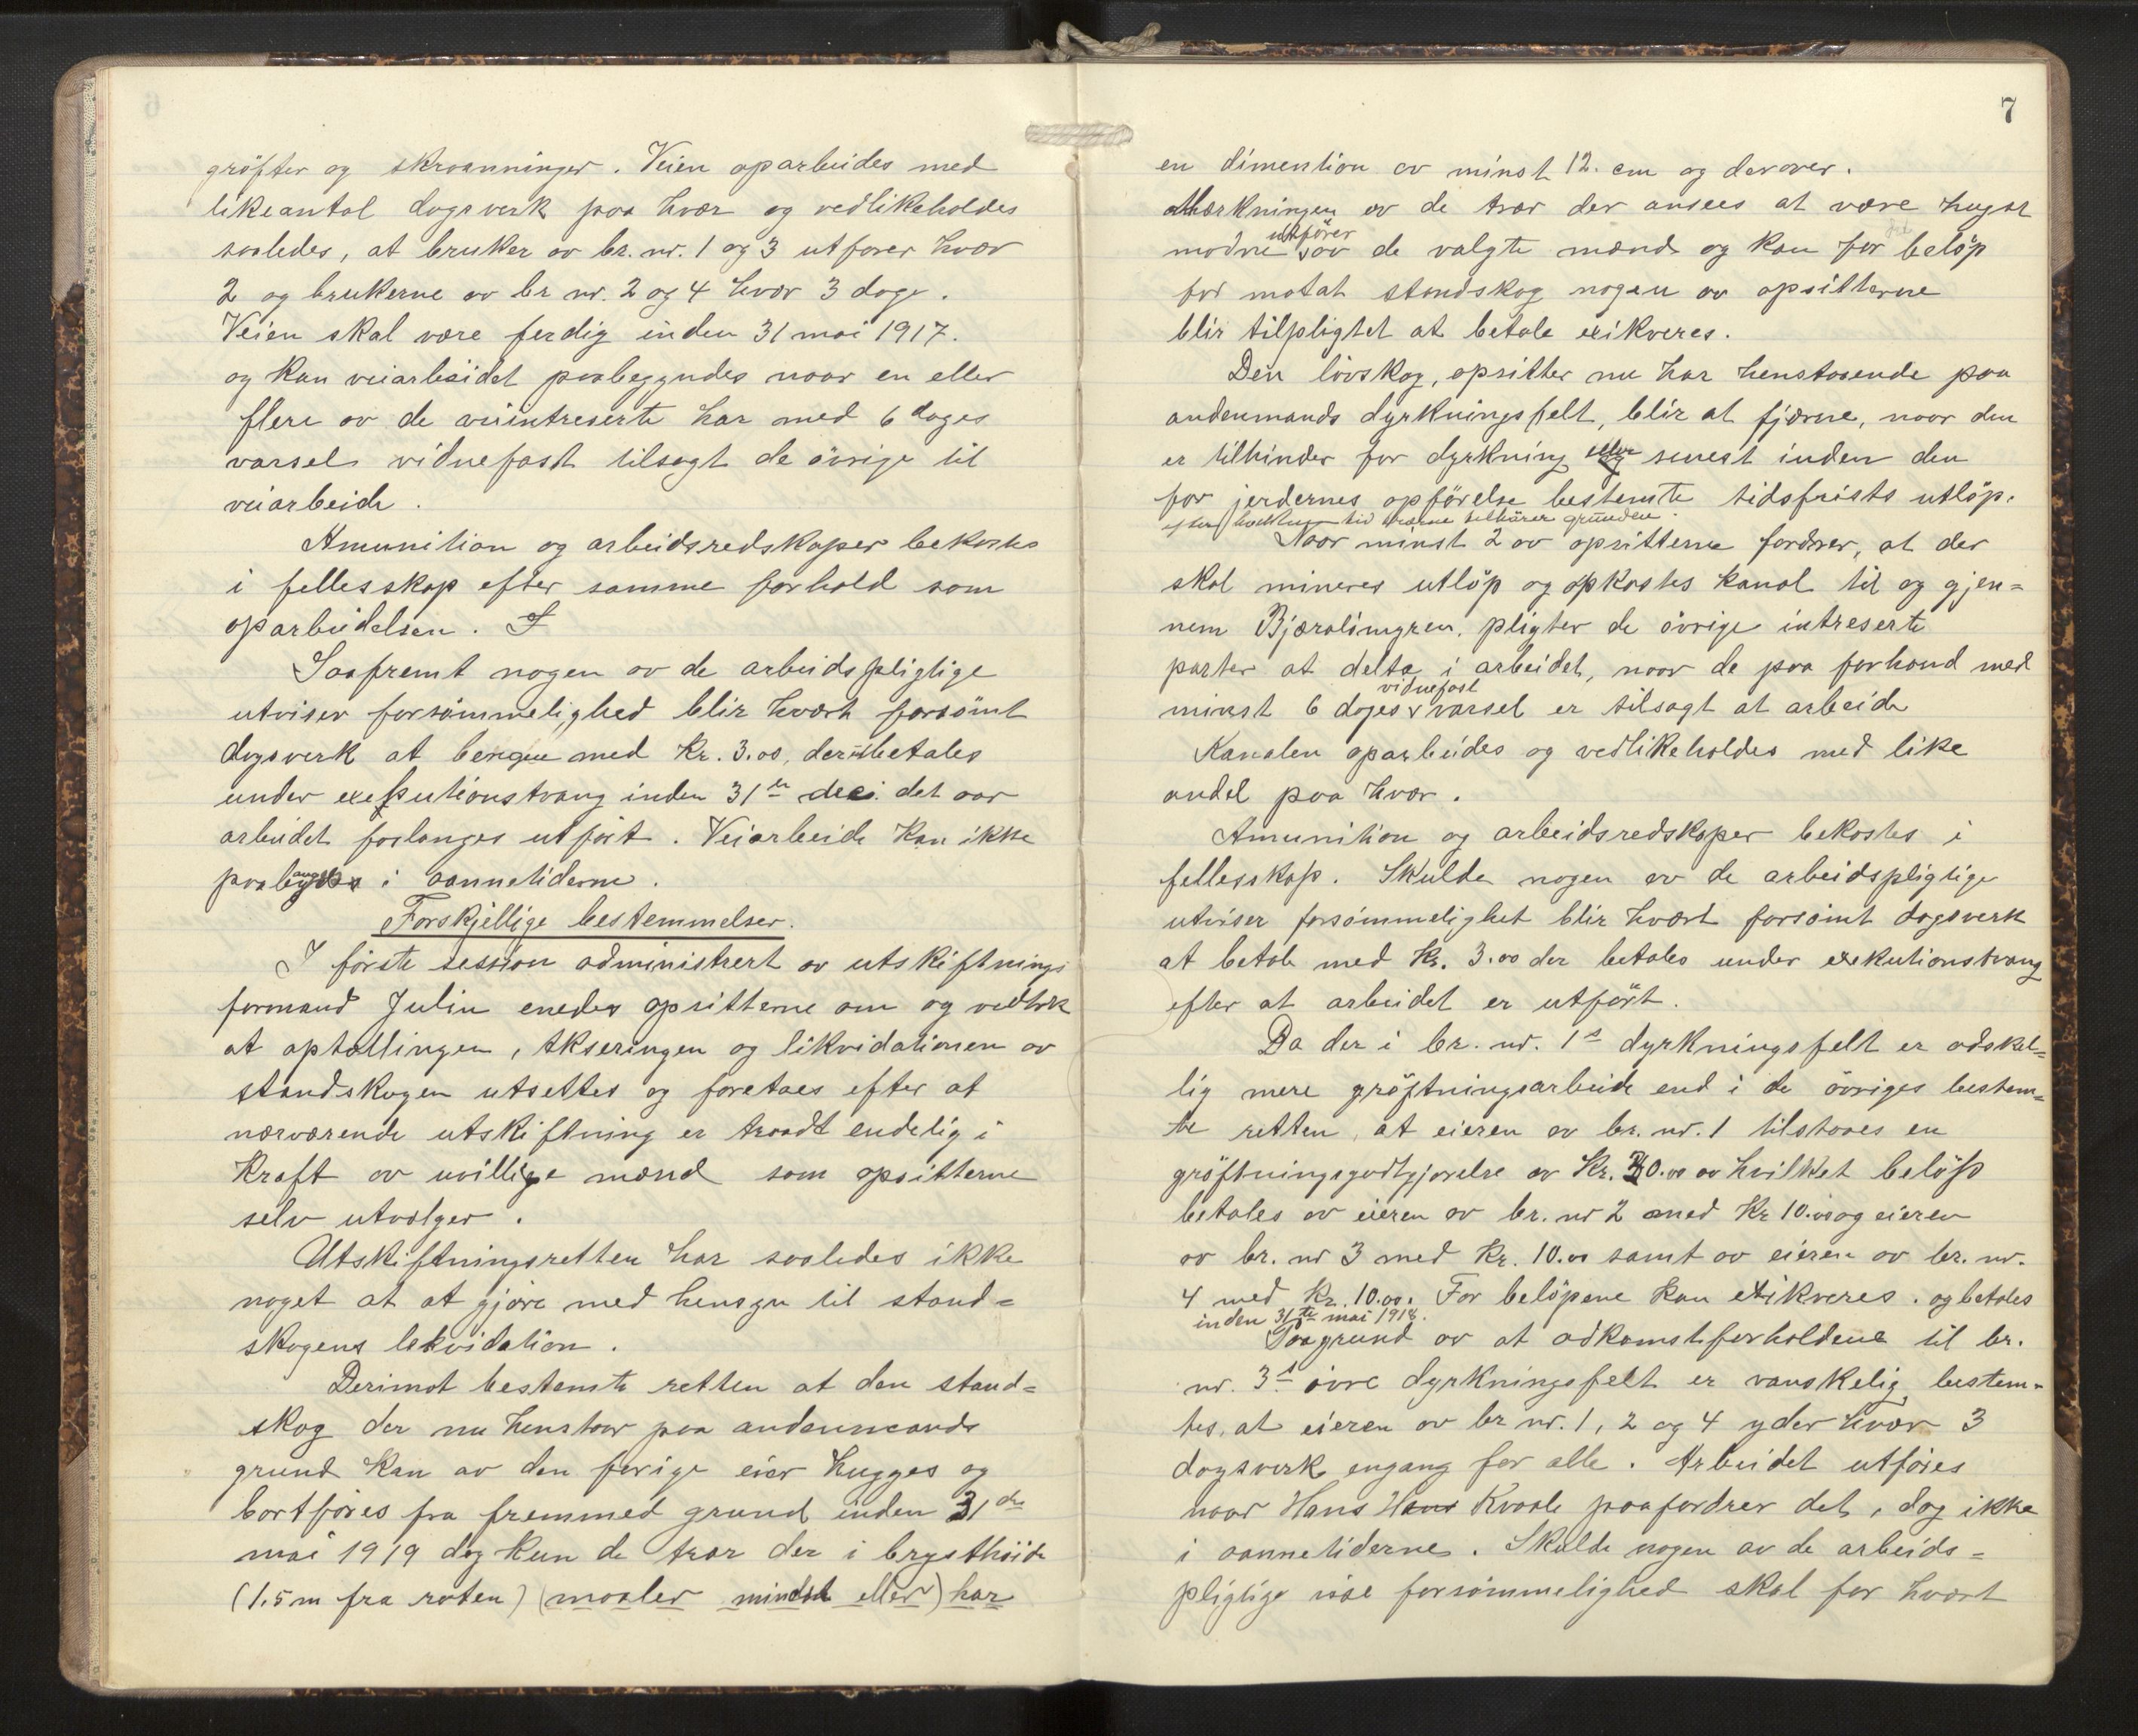 gröfter og skraanninger. Veien oparbeides med
likeantal dagsverk paa hver og vedlikeholdes
saaledes, at bruker av br. nr. 1 og 3 utfører hver
2 og brukerne av br nr. 2 og 4 hver 3 dage.
Veien skal være ferdig inden 31 mai 1917.
og kan veiarbeidet paabegyndes naar en eller
flere av de veiintreserte har med 6 dages
varsel vidnefast tilsagt de övrige til
veiarbeide.
Amunition og arbeidsredskaper bekostes
i fellesskap efter samme forhold som
oparbeidelsen.
Saafremt nogen av de arbeidspligtige
utviser forsömmelighed blir hvert forsömt
dagsverk at med Kr. 3.00, der betales
under exekutionstvang inden 31te dec. det aar
arbeidet forlanges utfört. Veiarbeide kan ikke
i aannetiderne.
Forskjellige bestemmelser.
I förste session administrert av utskiftnings
formand Julin enedes opsitterne om og vedtok
at optællingen, takseringen og likvidationen av
standskogen utsettes og foretaes efter at
nærværende utskiftning er traadt endelig i
Kraft av uvillige mænd som opsitterne
selv utvælger.
Utskiftningsretten har saaledes ikke
noget at at gjøre med hensyn til stand=
skogens lekvidation.
Derimot bestemte retten at den stand=
skog der nu henstaar paa andenmands
grund kan av den forige eier hugges og
bortföres fra fremmed grund inden 31de
mai 1919 dog kun de trær der i brysthöide
(1.5 m fra roten) (maaler mindst eller) har
7
en dimention av minst 12. cm og derover.
Mærkningen av de trær der ansees at være hugst
utfører
modne av de valgte mænd og kan for belöp
for motat standskog nogen av opsitterne
blir tilpligtet at betale exikveres.
Den lövskog, opsitter nu har henstaaende paa
andenmands dyrkningsfelt, blir at fjærne, naar den
eller
er tilhinder for dyrkning og senest inden den
for jerdernes opförelse bestemte tidsfrists utlöp.
efter hvilken tid trærne tilhörer grunden.
Naar minst 2 av opsitterne fordrer, at der
skal mineres utlöp og opkastes kanal til og gjen=
nem Bjæralimyren, pligter de övrige intreserte
parter at delta i arbeidet, naar de paa forhand med
vidnefast
minst 6 dages varsel er tilsagt at arbeide
Kanalen oparbeides og vedlikeholdes med like
andel paa hver.
Amunition og arbeidsredskaper bekostes i
fellesskap. Skulde nogen av de arbeidspligtige
utviser forsömmelighet blir hvert forsömt dagsverk
at betale med Kr. 3.00 der betales under exekutionstvang
efter at arbeidet er utfört.
Da der i br. nr. 1s dyrkningsfelt er adskel=
lig mere gröftningsarbeide end i de övriges bestem=
te retten, at eieren av br. nr. 1 tilstaaes en
gröftningsgodtgjørelse av Kr. 30.00 av hvilket belöp
betales av eieren av br. nr 2 med Kr 10.00 og eieren
av br. nr 3 med Kr. 10.00 samt av eieren av br. nr.
4 med Kr. 10.00. For belöpene kan exikveres. og betales
inden 31te mai 1918.
Paagrund av at adkomstforholdene til br.
nr. 3s övre dyrkningsfelt er vanskelig bestem-
tes, at eieren av br nr. 1, 2 og 4 yder hver 3
dagsverk engang for alle. Arbeidet utföres
naar Hans Hans Kvaale paafordrer det, dog ikke
i aannetiderne. Skulde nogen av de arbeids=
pligtige vise forsömmelighed skal for hvert